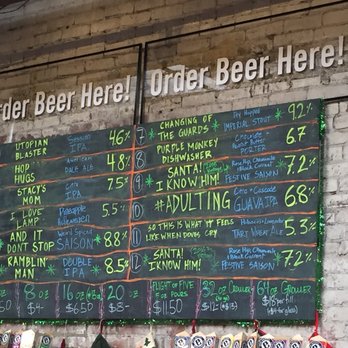 Order Beer Here!
Order Beer Here!
UTOPIAN BLASTER
Session IPA
4.6%
HOP HUGS
PALE ALE
4.8%
STACY'S MOM
IPA
7.5%
I LOVE LAMP
Pineapple
5.5%
AND IT DON'T STOP
SAISON
8.8%
RAMBLIN' MAN
DOUBLE IPA
8.5%
7
CHANGING OF THE GUARDS
IMPERIAL STOUT
9.2%
8
PURPLE MONKEY DISHWASHER
Chocolate Peanut Butter
PORTER
6.7
9
SANTA! I KNOW HIM!
FESTIVE SAISON
7.2%
10
#ADULTING
Citra + Cascade
GUAVA IPA
6.8%
11
SO THIS IS WHAT IT FEELS LIKE WHEN DOVES CRY
TART WHEAT ALE
5.3%
12
SANTA! I KNOW HIM!
FESTIVE SAISON
7.2%
8oz
$4-
16oz
$6.50
20oz
$8-
FLIGHT OF FIVE
5 oz POURS
$11.50
32oz GROWLER
64oz GROWLER